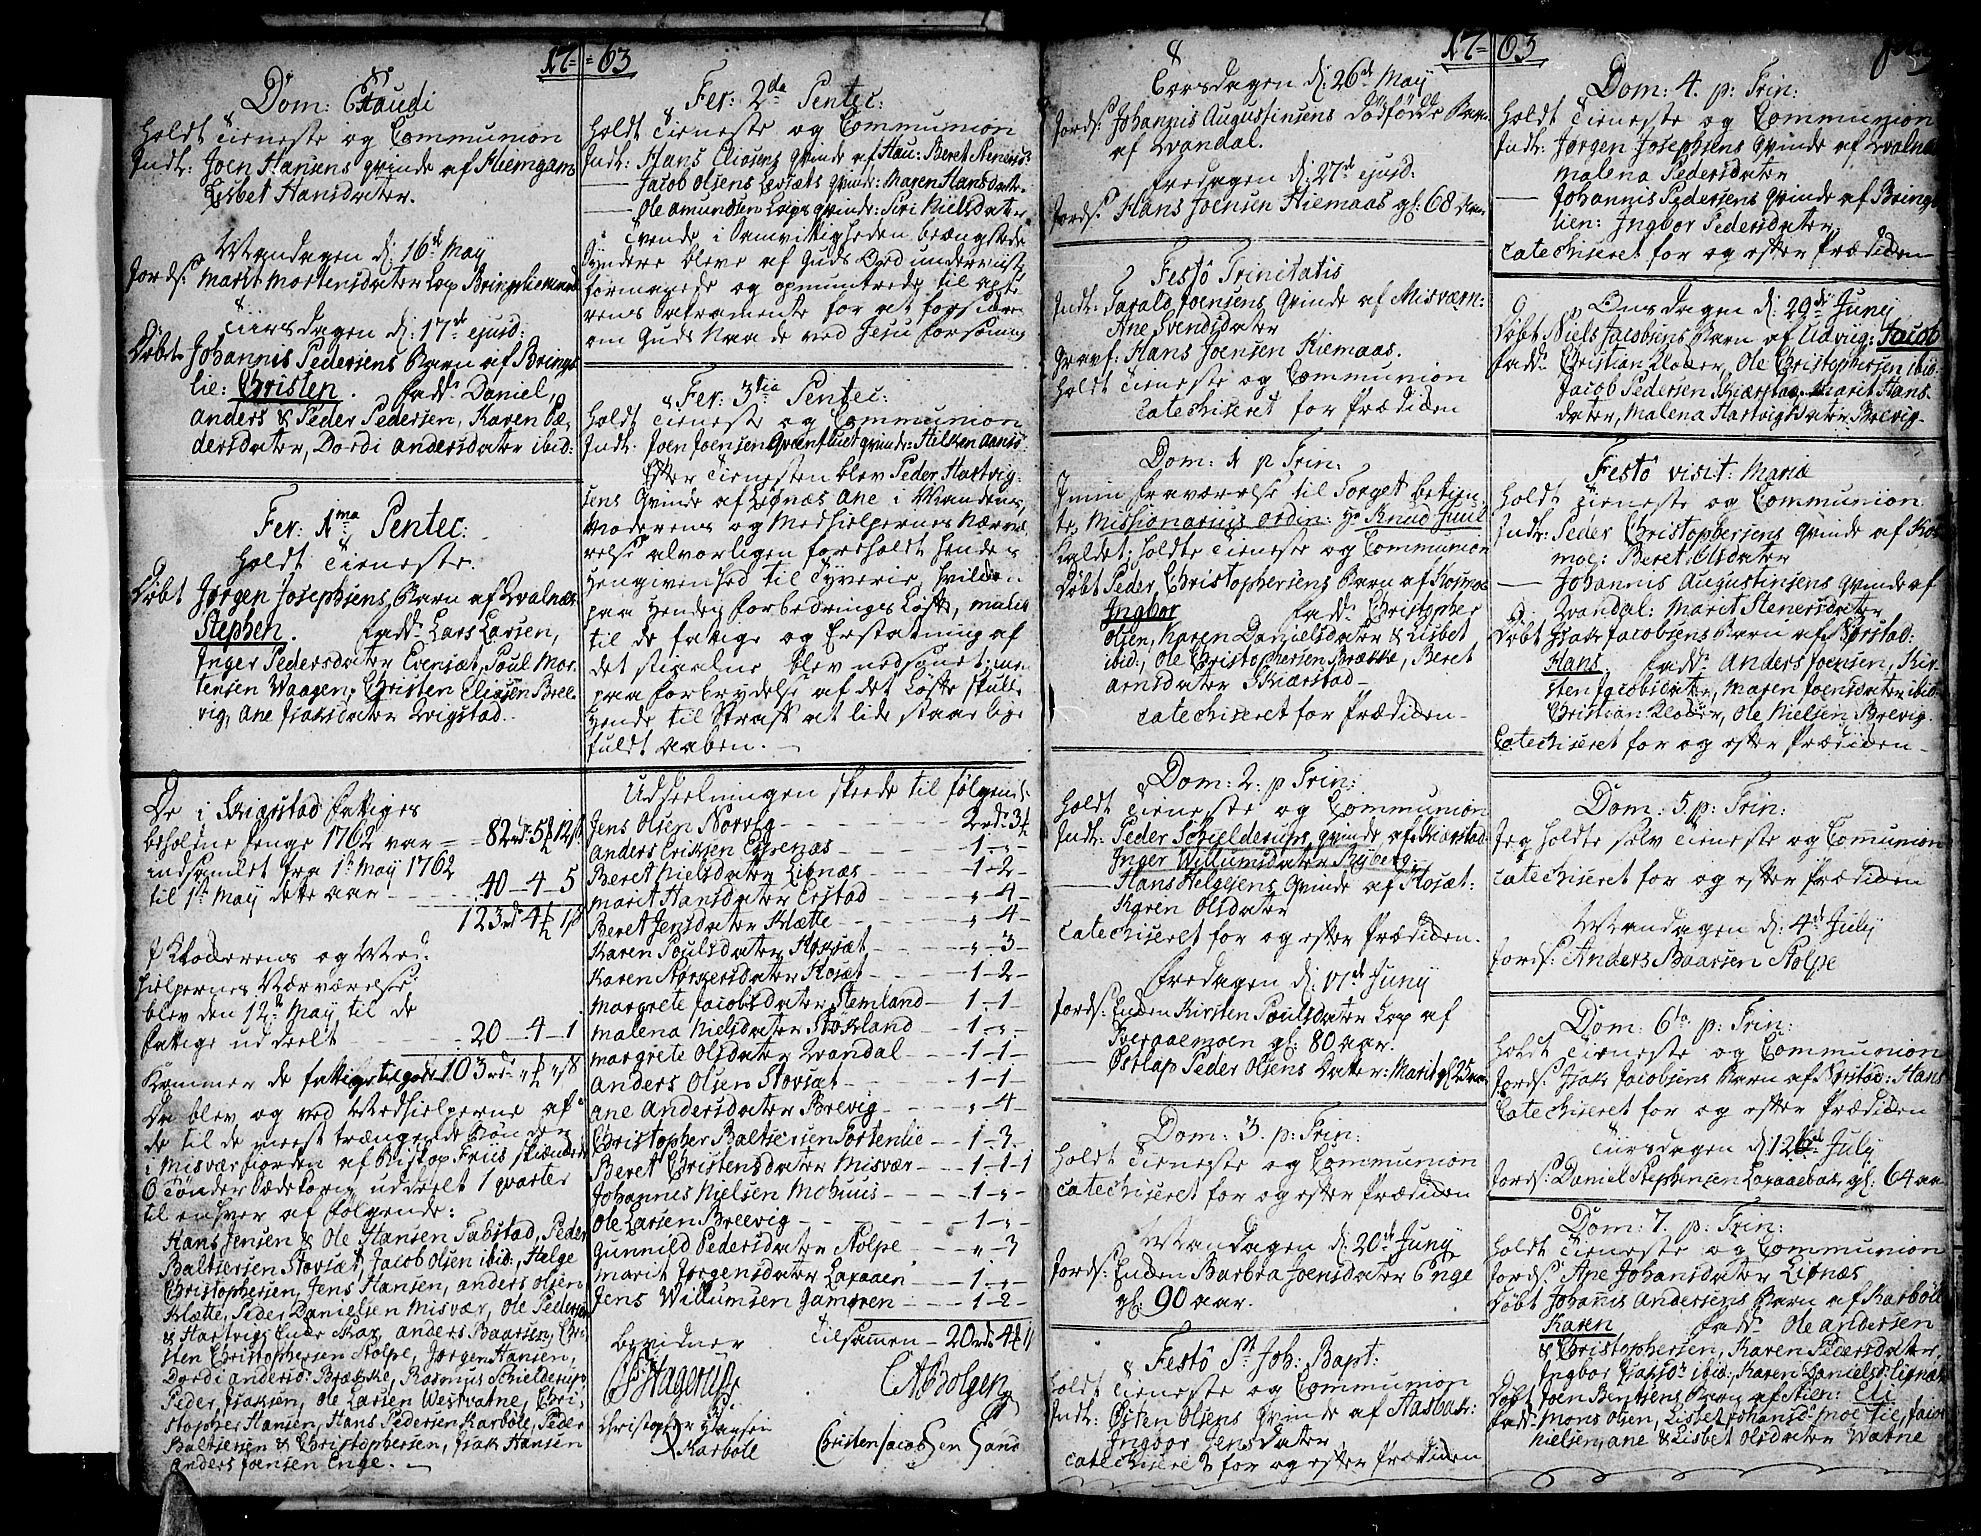 17=63
Dom: Exaudi
Holdt Tieneste og Communion
Indl: Joen Hansens qvinde af
Lisbet Hansdater.
Mandagen d: 16de May
Jords: Marit Mortensdater Lap Bringslimark
Tiirsdagen d: 17de ejusd:
Døbt Johannis Pedersens Barn af Brings
lie: Christen. fadd: Daniel,
Anders & Peder Pedersen, Karen Pe,
dersdater, Dordi Andersdater ibid:
Fer: 1ma Pentec:
Holdt Tieneste.
Døbt Jørgen Josephsens Barn af Qvalnæs
Stephen. fadd: Lars Larsen,
Inger Pedersdater Evensæt, Poul Mor,
tensen Waagen, Christen Eliasen Bree
vig, Ane Isaksdater Qvigstad.
De i Skierstad fattiges
beholdne Penge 1762 var 82rd: 5 12
indsamlet fra 1te May 1762
til 1te May dette aar 40-4-5
123rd 4 1
I Klokkerens og Med:
hielpernes Nærværelse
blev den 12te May til de
fattige uddeelt 20-4-1
Kommer de fattige tilgode 103rd
Da blev og ved Medhielperne af
de til de meest trængende Bønder
i Misværfiorden af Biskop Friis skienkede
6 Tønder Sædekorn uddeelt 1 qvarter
til enhver af følgende:
Hans Jensen & Ole Hansen Tabstad, Peder
Baltsersen Storsæt, Jacob Olsen ibid:, Helge
Christophersen, Jens Hansen, Anders Olsen
Klætte, Peder Danielsen Misvær, Ole Pedersen
& Hartvig Ende Skar, Anders Baarsen, Chri
sten Christophersen Stolpe, Jørgen Hansen,
Dordi Andersd: Brække, Rasmus Schielderup
Peder Isaksen, Ole Larsen Westvatne, Chri,
stopher Hansen, Hans Pedersen Karbøle, Peder
Baltsersen & Christophersen, Isak Hansen
Anders Joensen Enge.
Fer: 2da Pentec:
Holdt Tieneste og Communion
Indl: Hans Eliasens Qvinde af Hau: Beret
Jacob Olsens Levsæts Qvinde: Maren Hansdater
Ole Amundsen Laps Qvinde: Siri Nielsdater
Tvende i Samvittigheden beængstede
Syndere bleve af Guds Ord underviist
formanede og opmuntrede til
rens Sakramente for at forsikres
om Guds Naade ved Jesu Forsoning
Fer: 3tia Pentec:
Holdt Tieneste og Communion
Indl: Joen Joensen Grønfluet Qvinde:
Efter Tienesten blev Peder Hartvig,
sens Qvinde af Liønæs Ane i Mandens,
Moderens og Medhielpernes Nærvæ
relse alvorligen foreholdt hendes
Hengivenhed til Tyverie, hvilken
paa Hendes Forbedrings Løfte,
til de fattige og Erstatning af
det stiaalne blev
paa Forbrydelse af det Løfte skulle
hende til Straff at lide staae lige
fuldt aaben.
Uddeelningen skeede til følgende
Jens Olsen Norvig 2rd: 3
Anders Eriksen Espenæs 1 „
Beret Nielsdater Liønæs 1-2
Marit Hansdater Erstad „-4
Beret Jensdater Klætte „-4
Karen Poulsdater Kosæt „-3
Karen Kosæt 1-2
Margrete Jacobsdater Stemland 1-1
Malena Nielsdater Stokland 1-„
Margrete Olsdater Qvandal 1-1
Anders Olsen Storsæt 1-1
Ane Andersdater Brevig „-4
Christopher Baltsersen Tortenlie 1-3
Beret Christensdater Misvær 1-1-1
Johannis Nielsen Mohuus 1-„
Ole Larsen Breevig 1-„
Gunnild Pedersdater Stolpe „-3
Marit Jørgensdater Laxaaen 1-„
Jens Willumsen Jamgren 1-2
bevidner Tilsammen 20rd: 4 1
Hagerup
Christopher Hansen
Karbøle
Christen Jacobsen
17=63
Torsdagen d: 26de May
Jords: Johannis Augustinsens Dødfødde Barn
af Qvandal.
Fredagen d: 27de ejusd:
Jords: Hans Joensen Kiemaas gl: 68 aar
Festo Trinitatis
Indl: Tarald Joensens Qvinde af Misværn:
Ane Svendsdater
Gravf: Hans Joensen Kiemaas.
Holdt Tieneste og Communion
Catechiseret for Prædiken
Dom: 1 p Trin:
I min fraværelse til Torget betien,
te Missionarius ordin: Hr Knud Juul
Kaldet; holdte Tieneste og Communion
Døbt Peder Christophersens Barn af Kosmoe
Ingbor fadd: Christopher
Olsen, Karen Danielsdater & Lisbet
ibid:, Ole Christophersen Brække, Beret
Arnsdater Skiærstad
Catechiseret for Prædiken
Dom: 2. p: Trin:
Holdt Tieneste og Communion
Indl: Peder Schielderups Qvinde af Skierstad:
Inger Willumsdater Nyberg.
Hans Helgesens Qvinde af Kosæt:
Karen Olsdater
Catechiseret for og efter Prædiken.
Fredagen d: 17de Juny
Jords: Enken Kirsten Poulsdater Lap af
gl: 80 aar.
Østlap Peder Olsens Dater: Marit gl: 25 aar
Dom: 3. p: Trin:
Holdt Tieneste og Communion
Catechiseret for og efter Prædiken
Mandagen d: 20de Juny
Jords: Enken Barbra Joensdater Enge
gl: 90 aar.
Festo St Joh: Bapt:
Holdt Tieneste og Communion
Indl: Østen Olsens Qvinde af Aasbak:
Ingbor Jensdater
Catechiseret for og efter Prædiken
Dom: 4. p: Trin:
Holdt Tieneste og Communion
Indl: Jørgen Josephsens Qvinde af Qvalnæs
Malena Pedersdater
Johannis Pedersens Qvinde af Brings
lien: Ingbor Pedersdater
Catechiseret for og efter Prædiken
Onsdagen d: 29de Juny
Døbt Niels Jacobsens Barn af Udviig: Jacob
fadd: Christian Klokker, Ole Christophersen ibid:
Jacob Pedersen Skiærstad, Marit Hans
dater, Malena Hartvigsdater Brevig
Festo visit: Mariæ
Holdt Tieneste og Communion
Indl: Peder Christophersens Qvinde af Kos
moe: Beret Olsdater
Johannis Augustinsens Qvinde af
Qvandal: Maret Stenersdater
Døbt Isak Jacobsens Barn af Nørstad:
Hans fadd: Anders Joensen, Kir
sten Jacobsdater, Maren Joensdater ibid:
Christian Klokker, Ole Nielsen Brevig.
Catechiseret for og efter Prædiken
Dom: 5 p: Trin:
Jeg holdte selv Tieneste og Communion
Catechiseret for og efter Prædiken
Mandagen d: 4de July
Jords: Anders Baarsen Stolpe
Dom: 6ta p: Trin:
Holdt Tieneste og Communion
Jords: Isak Jacobsens Barn af Nørstad: Hans
Catechiseret for og efter Prædiken
Tiirsdagen d: 12te July
Jords: Daniel Stephensen Laxaaebak gl: 64 aar
Dom: 7. p: Trin:
Holdt Tieneste og Communion
Jords: Ane Johansdater Liønæs
Døbt Johannis Andersens Barn af Karbøle
Karen fadd: Ole Andersen
& Christophersen, Karen Pedersdater
Ingbor Isaksd: ibid:, Karen Danielsd: Liønæs
Døbt Joen Bentsens Barn af Lien: Eli
fadd: Mons Olsen, Lisbet Johansd: Moe, Jacob
Nielsen, Ane & Lisbet Olsdater Watne